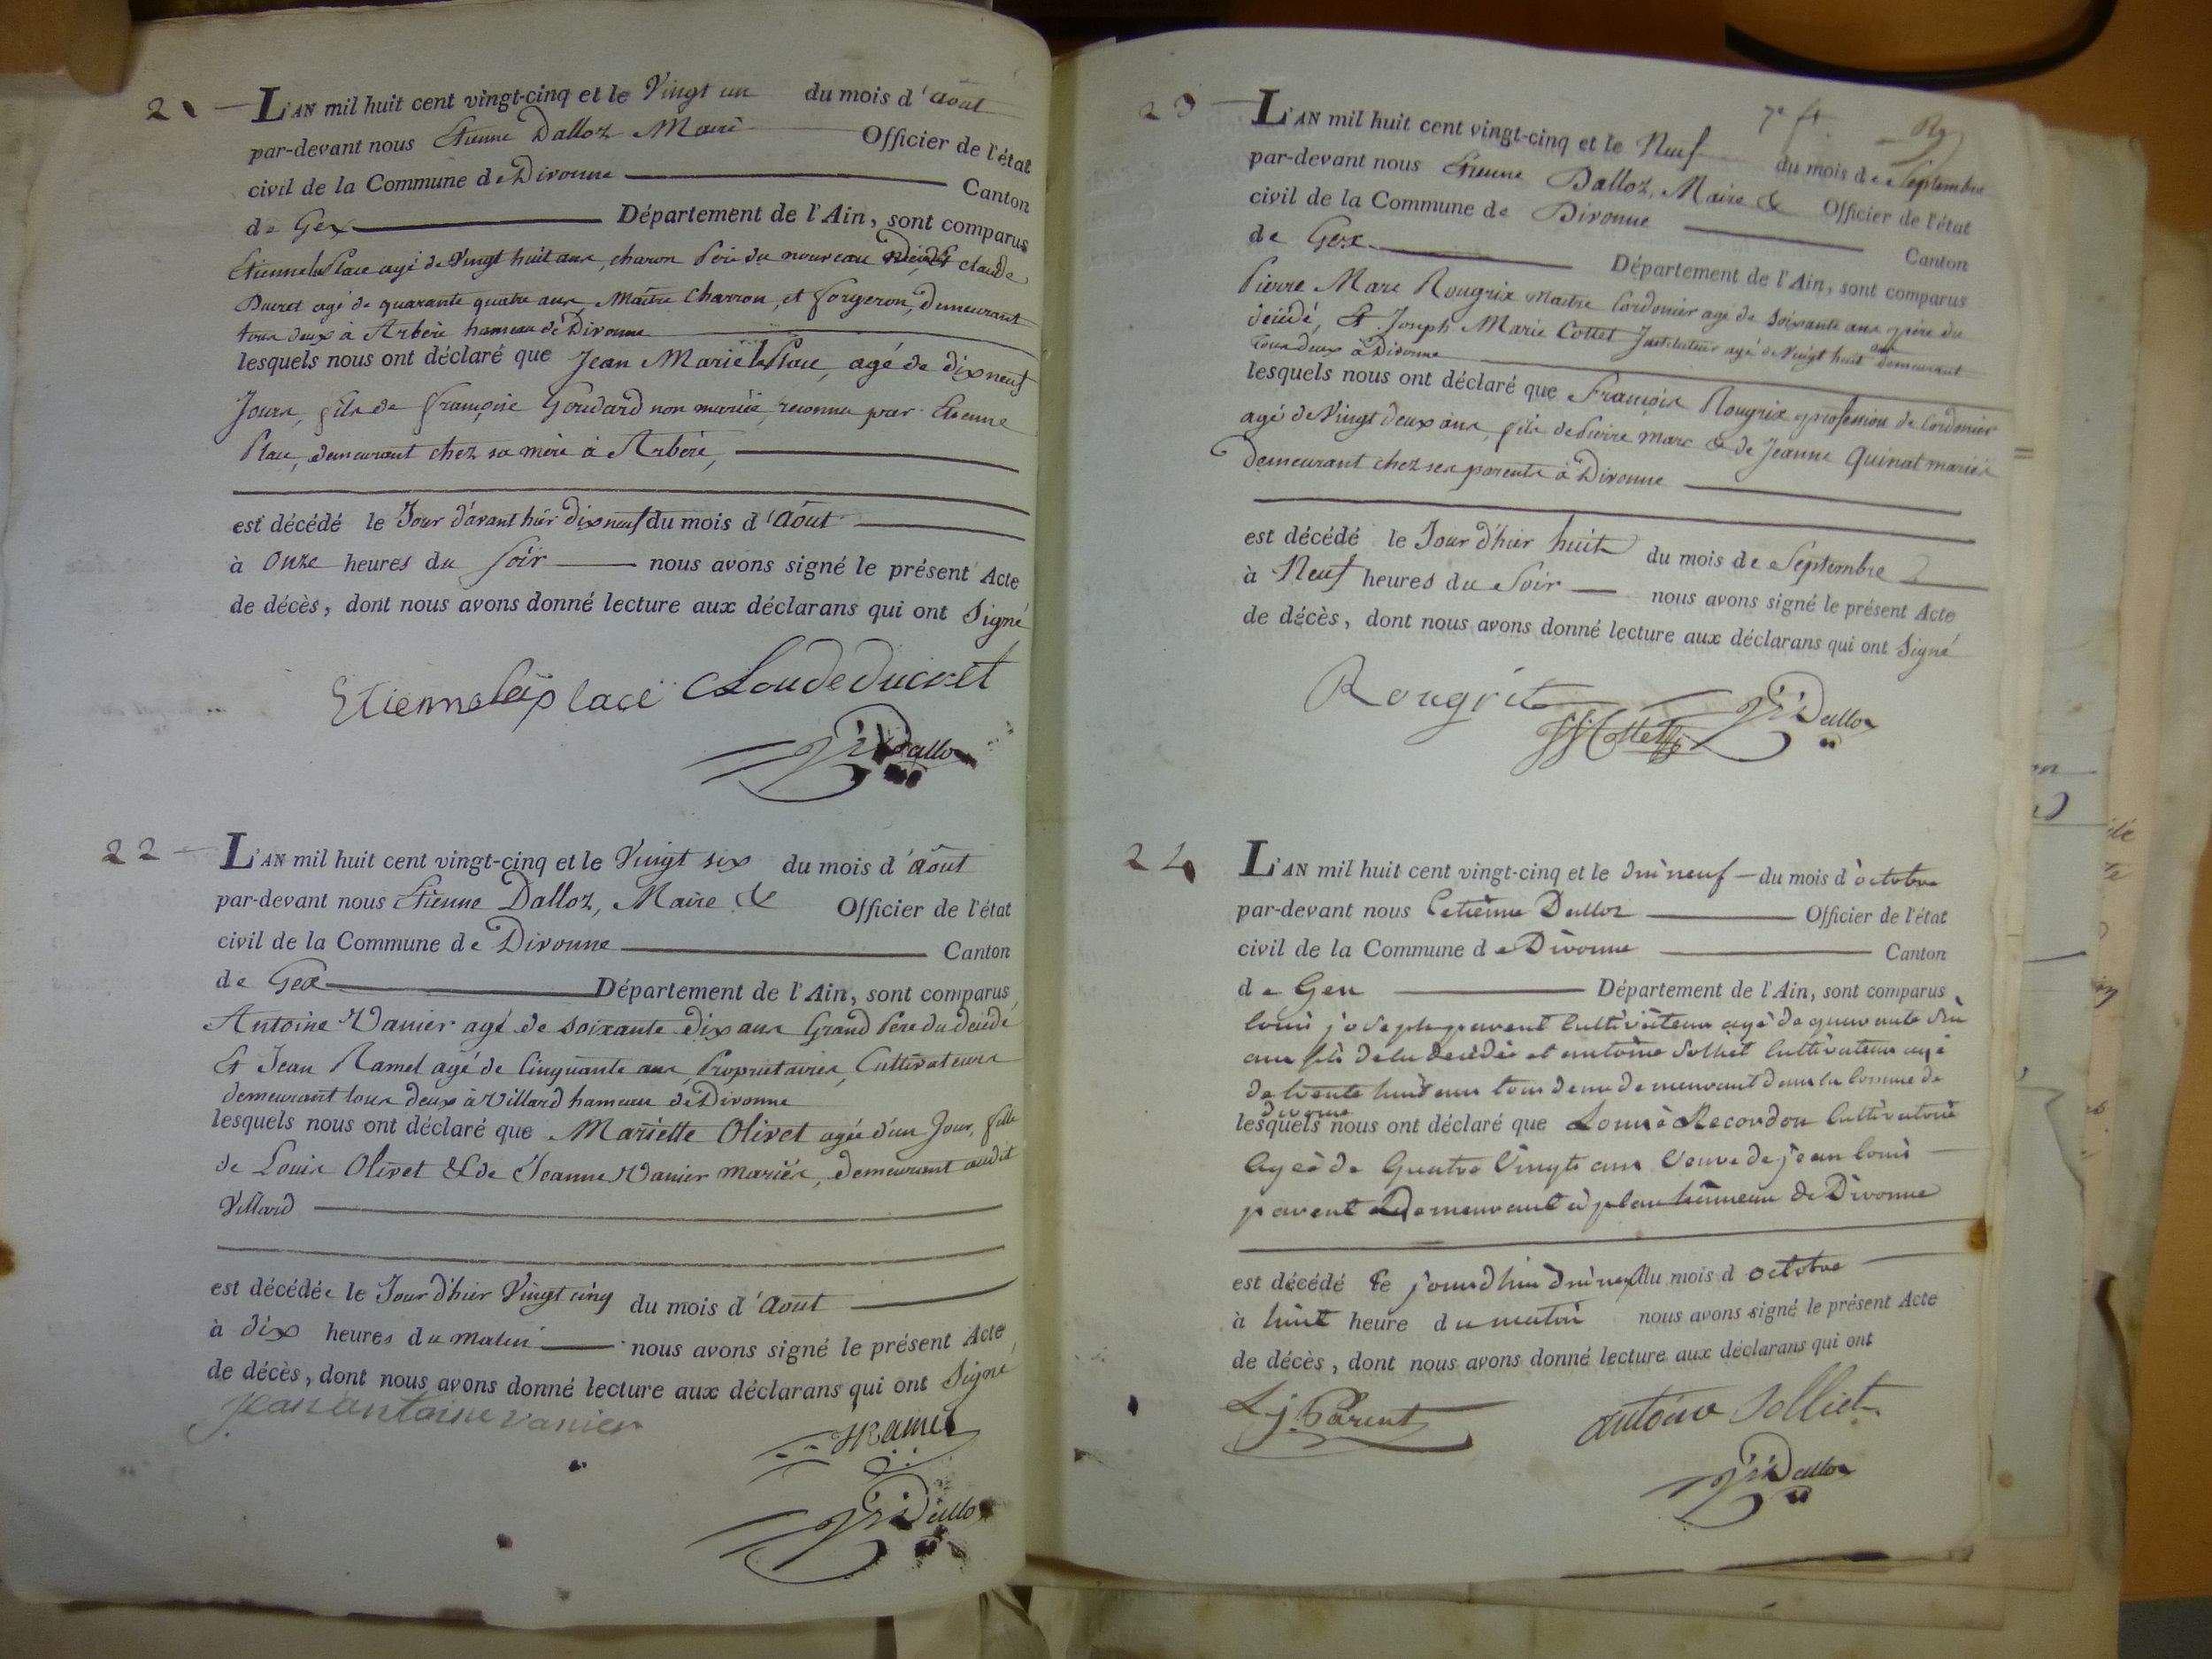 21
L'AN mil huit cent vingt-cinq et le Vingt un du mois d'août
par-devant nous Etienne Dalloz Maire Officier de l'état
civil de la Commune de Divonne Canton
de Gex Département de l'Ain, sont comparus
Etienne laPlace agé de Vingt huit ans, charon Père du nouveau Claude
Ducret agé de quarante quatre ans Maitre Charron, et forgeron, demeurant
tous deux à Arbère hameau de Divonne
lesquels nous ont déclaré que Jean Marie laPlace, agé de dix neuf
Jours, fils de françoise Goudard non mariée, reconnu par Etienne
Place, demeurant chez sa mère à Arbère,
est décédé le Jour d'avant hier dix neuf du mois d'Août
à Onze heures du soir nous avons signé le présent Acte
de décès, dont nous avons donné lecture aux déclarans qui ont Signé
Etienne la place Cloude ducret
Dalloz
22
L'AN mil huit cent vingt-cinq et le Vingt six du mois d'août
par-devant nous Etienne Dalloz, Maire & Officier de l'état
civil de la Commune de Divonne Canton
de Gex Département de l'Ain, sont comparus
Antoine Vanier agé de soixante dix ans Grand Pere du décédé
Et Jean Ramel agé de Cinquante ans, Propriétaires, Cultivateurs
demeurant tous deux à Villard hameau de Divonne
lesquels nous ont déclaré que Mariette Olivet agée d'un Jour, fille
de Louis Olivet & de Jeanne Vanier mariés, demeurant audit
Villard
est décédée le Jour d'hier Vingt cinq du mois d'Août
à dix heures du matin nous avons signé le présent Acte
de décès, dont nous avons donné lecture aux déclarans qui ont Signé
Jean antoine vanier
JRamel
Dalloz
23
L'AN mil huit cent vingt-cinq et le Neuf du mois de Septembre
par-devant nous Etienne Dalloz, Maire & Officier de l'état
civil de la Commune de Divonne Canton
de Gex Département de l'Ain, sont comparus
Pierre Marc Rougrix maitre Cordonier agé de soixante ans père du
décédé, Et Joseph Marie Cottet Instituteur agé de Vingt huit ans demeurant
tous deux à Divonne
lesquels nous ont déclaré que François Rougrix profession de Cordonier
agé de Vingt deux ans, fils de Pierre Marc & de Jeanne Quinat mariés
demeurant chez ses parents à Divonne
est décédé le Jour d'hier huit du mois de Septembre
à Neuf heures du Soir nous avons signé le présent Acte
de décès, dont nous avons donné lecture aux déclarans qui ont Signé
Rougrit
Cottet
Dalloz
24
L'AN mil huit cent vingt-cinq et le dixneuf du mois d'octobre
par-devant nous Dalloz Officier de l'état
civil de la Commune de Divonne Canton
de Gex Département de l'Ain, sont comparus
louis joseph parent Cultivateur agé de quarante dix
ans fils de la décédée et antoine Solliet Cultivateur agé
de trente huit ans tous deux demeurant dans la Comune de
divonne
lesquels nous ont déclaré que Louise Recordon Cultivatrice
Agée de Quatre Vingts ans Veuve de jean louis
parent demeurant à plan hameau de Divonne
est décédé le jourd'hui dixneuf du mois d octobre
à huit heure du matin nous avons signé le présent Acte
de décès, dont nous avons donné lecture aux déclarans qui ont
L j Parent
antoine Solliet
Dalloz